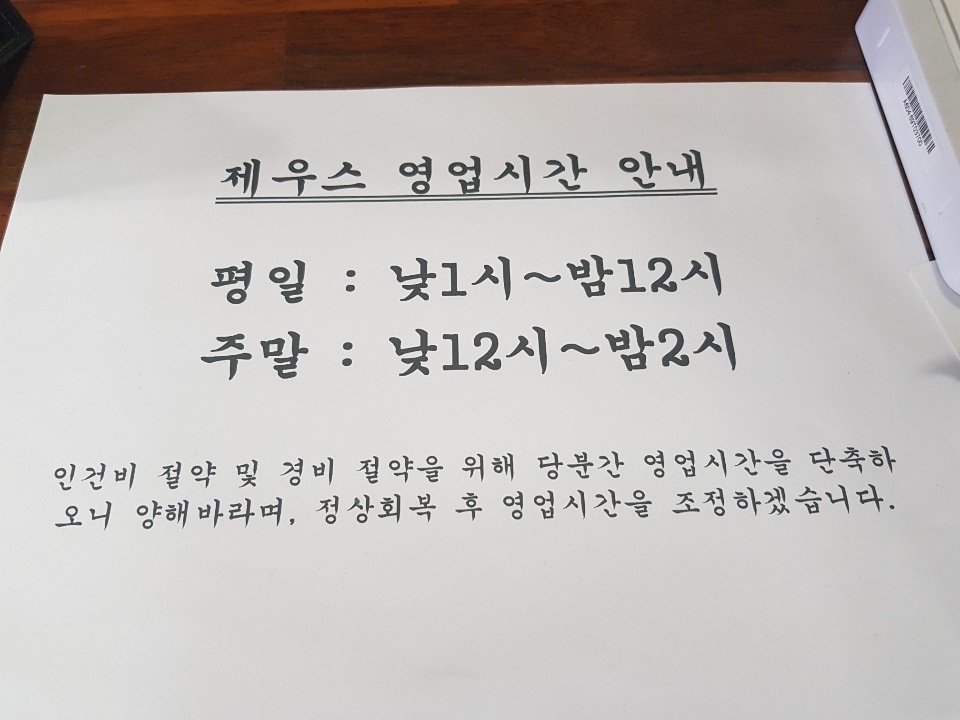 제우스 영업시간 안내
평일 : 낮1시~밤12시
주말 : 낮12시~밤2시
인건비 절약 및 경비 절약을 위해 당분간 영업시간을 단축하
오니 양해바라며, 정상회복 후 영업시간을 조정하겠습니다.